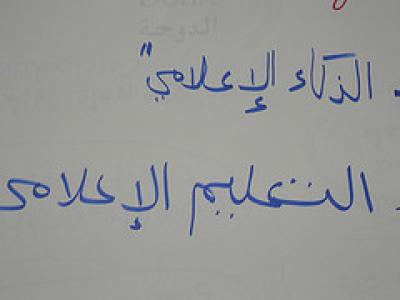 الدوحة
. الذكاء الإعلامي"
. التعليم الإعلامي